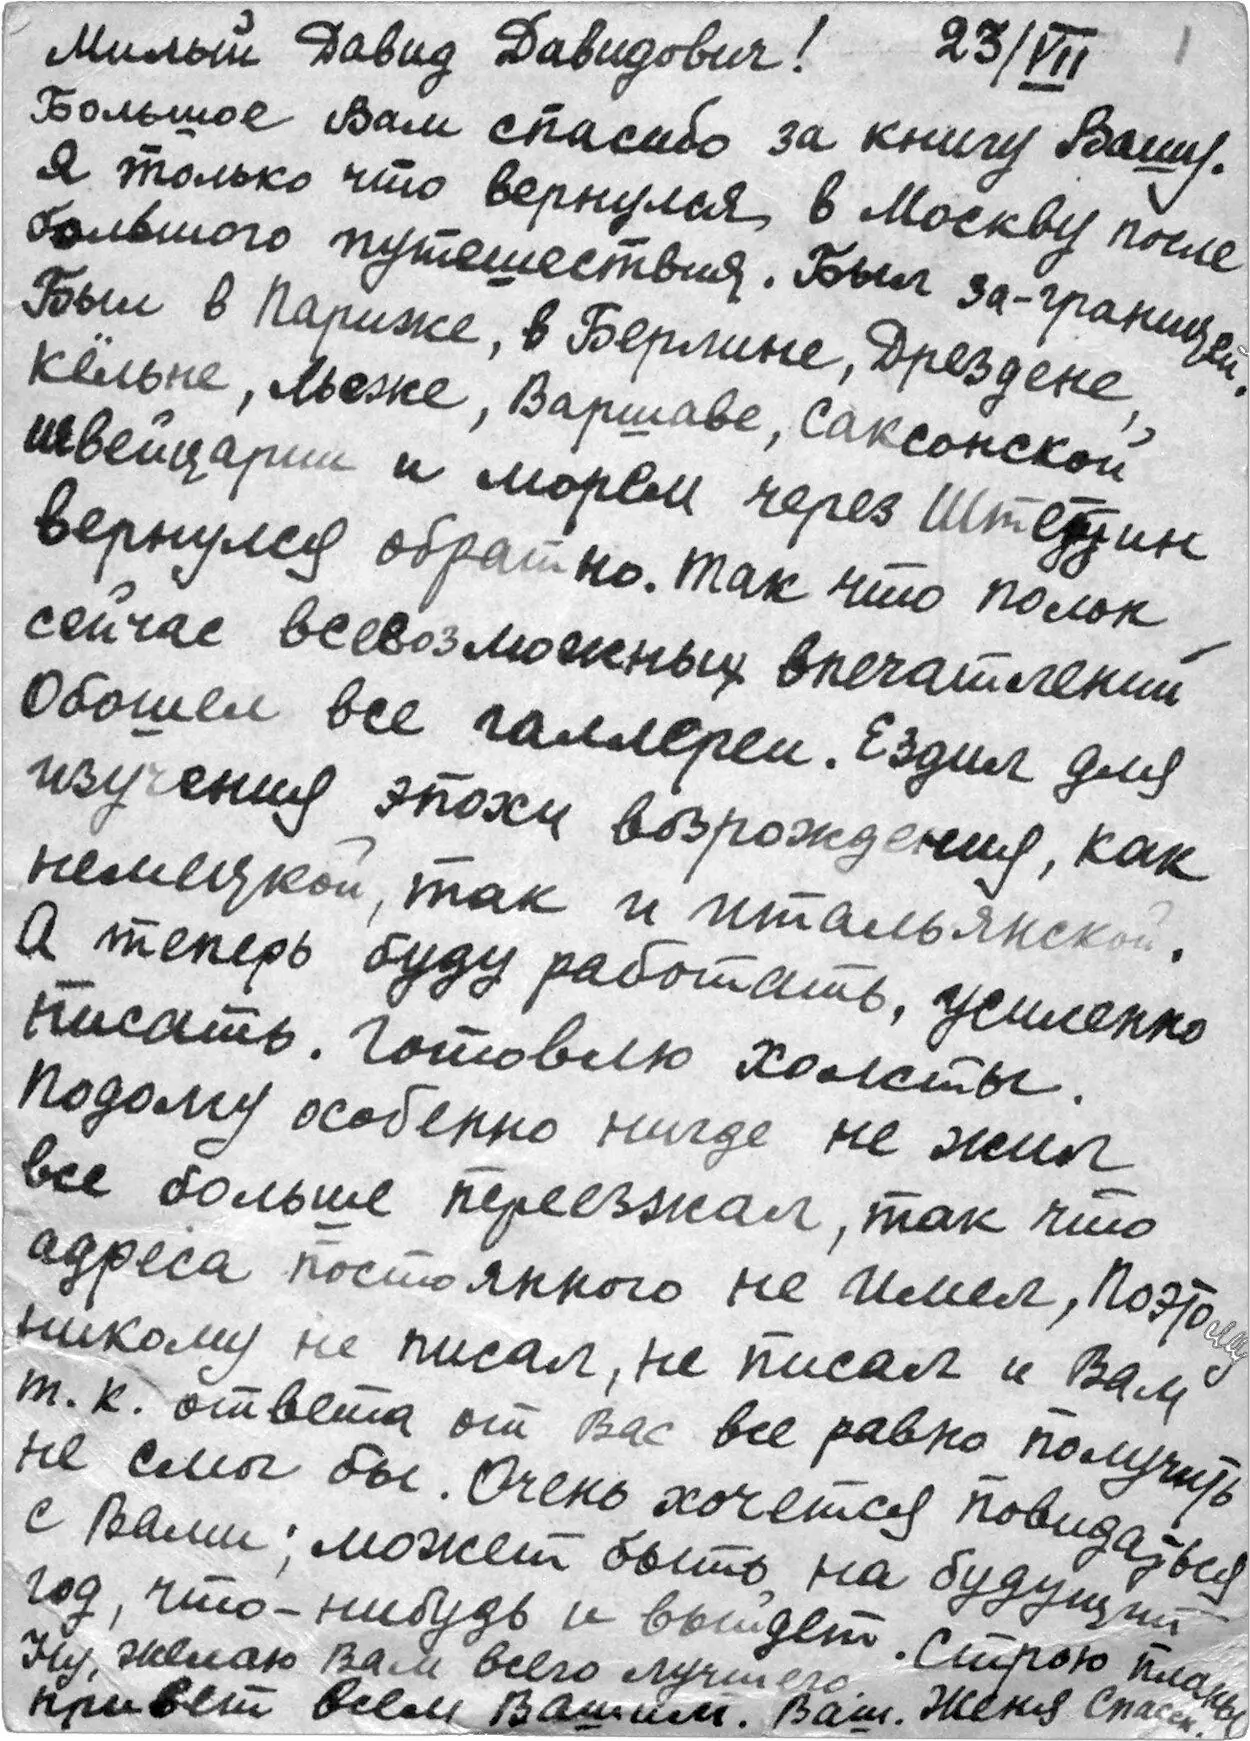 Милый Давид Давидович! 23/VII
Большое Вам спасибо за книгу Вашу.
Я только что вернулся в Москву после
большого путешествия. Был за-границей.
Был в Париже, в Берлине, Дрездене,
Кёльне, Льеже, Варшаве, Саксонской
швейцарии и морем через Штетин
вернулся обратно. Так что полон
сейчас всевозможных впечатлений
Обошел все галлереи. Ездил для
изучения эпохи возрождения, как
немецкой, так и итальянской.
А теперь буду работать, усиленно
писать. Готовлю холсты.
Подолгу особенно нигде не жил
все больше переезжал, так что
адреса постоянного не имел, Поэтому
никому не писал, не писал и Вам
т.к. ответа от Вас все равно получить
не смог бы. Очень хочется повидаться
с Вами; может быть на будущий
год, что-нибудь и выйдет. Строю планы
Ну, желаю Вам всего лучшего.
привет всем Вашим. Ваш. Женя Спасск.